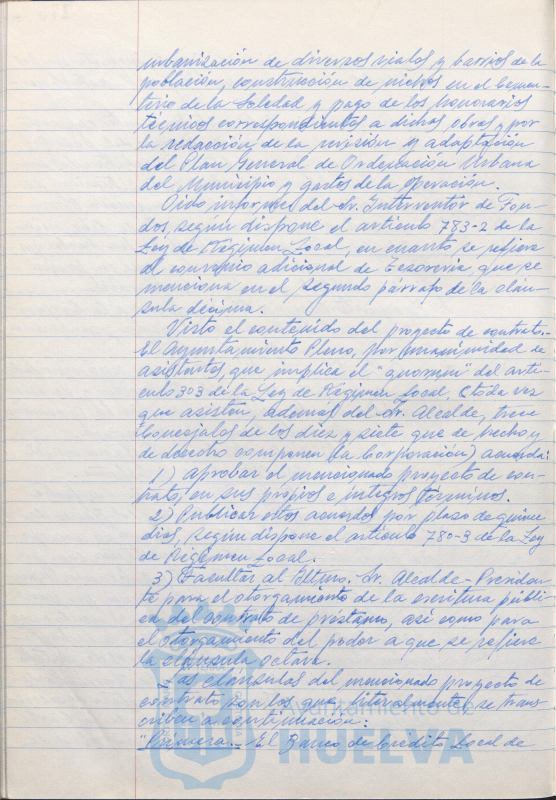 urbanización de diversos viales y barrios de la
población, construcción de nichos en el Cemen-
terio de la Soledad y pago de los honorarios
técnicos correspondientes a dichas obras y por
la redacción de la revisión y adaptación
del Plan General de Ordenación Urbana
del Municipio y gastos de la operación.
Oido informes del Sr. Interventor de Fon-
dos, según dispone el artículo 783-2 de la
Ley de Régimen Local, en cuanto se refiere
al convenio adicional de Tesorería, que se
menciona en el segundo párrafo de la cláu-
sula décima.
Visto el contenido del proyecto de contrato.-
El Ayuntamiento Pleno, por unanimidad de
asistentes, que implica el "quorum" del artí-
culo 303 de la Ley de Régimen Local, (toda vez
que asisten, además del Sr. Alcalde, trece
Concejales de los diez y siete que de hecho y
de derecho componen la Corporación) acuerda:
1) Aprobar el mencionado proyecto de con-
trato, en sus propios e íntegros términos.
2) Publicar estos acuerdos por plazo de quince
días, según dispone el artículo 780-3 de la Ley
de Régimen Local.
3) Facultar al Iltmo. Sr. Alcalde-Presiden-
te para el otorgamiento de la escritura públi-
ca del contrato de préstamo, así como para
el otorgamiento del poder a que se refiere
la cláusula octava.
Las cláusulas del mencionado proyecto de
contrato son las que, literalmente, se trans-
criben a continuación:
"Primera.- El Banco de Crédito Local de
Ayuntamiento de
HUELVA